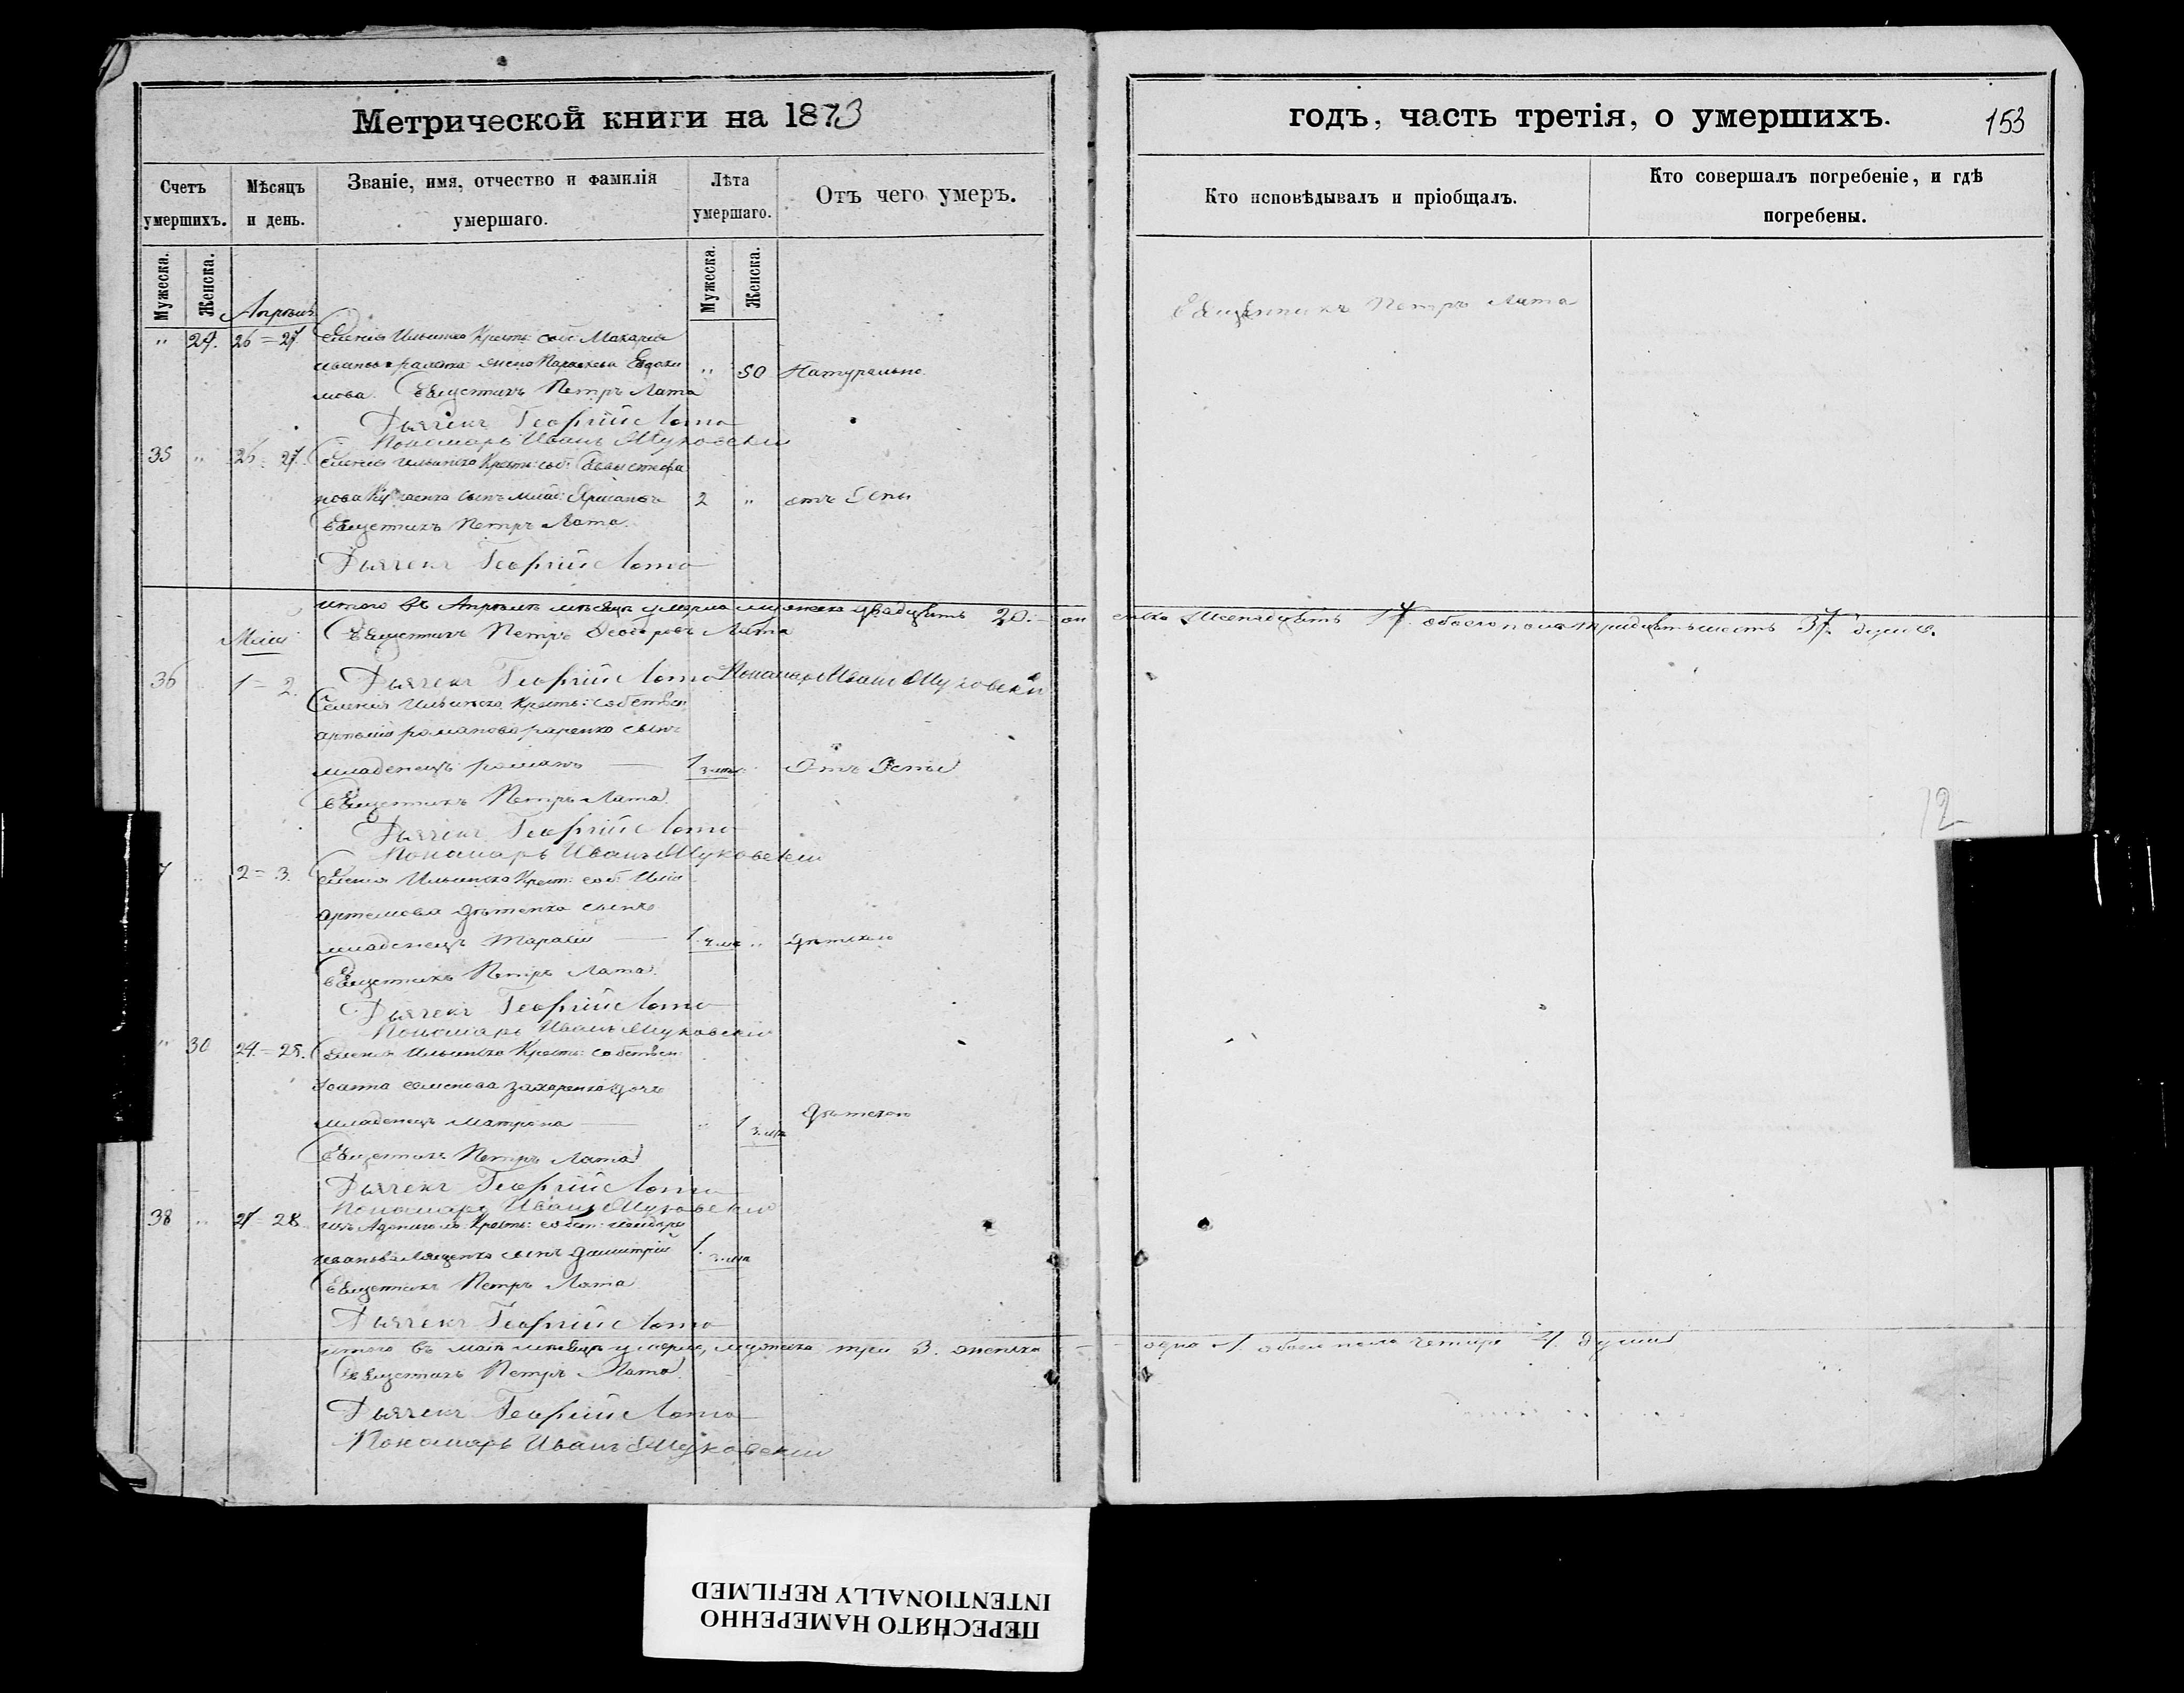 Метрической книги на 1873
годъ, часть третія, о умершихъ.
153
Счетъ умершихъ.
Мѣсяцъ и день.
Званіе, имя, отчество и фамилія умершаго.
Лѣта умершаго.
Отъ чего умеръ.
Кто исповѣдывалъ и пріобщалъ.
Кто совершалъ погребеніе, и гдѣ погребены.
Мужеска.
Женска.
Мужеска.
Женска.
Апрѣль
Священникъ Петръ Лата
" 29. 26 = 27 Селенія Ильинка Крест: соб: Макарія
Иванова жена Параскева Евдоки
мова " 50 Натурально
Священникъ Петръ Лата
Дьячекъ Георгій Лата
Пономарь Иванъ Жуковскій
35 " 26 = 27. Селенія Ильинска Крест: соб: Саввы Стефа
нова сынъ млад: 2 " отъ Оспы
Священникъ Петръ Лата
Дьячекъ Георгій Лата
итого въ Апрѣлѣ мѣсяцѣ умерло мужеска двадцать 20. женска 17. обоего пола 37. душъ.
Священникъ Петръ Феодоровъ Лата
Май
Дьячекъ Георгій Лата Пономарь Иванъ Жуковскій
36 " 1 = 2. Селенія Ильинска Крест: собствен
романова сынъ
младенецъ романъ 1 Отъ Оспы
Священникъ Петръ Лата
Дьячекъ Георгій Лата
Пономарь Иванъ Жуковскій
7 " 2 = 3. Селенія Ильинска Крест: соб: Иліи
Артемова сынъ
младенецъ Тарасій 1 " дѣтскою
Священникъ Петръ Лата
Дьячекъ Георгій Лата
Пономарь Иванъ Жуковскій
" 30 24 = 25. Селенія Ильинска Крест: собствен
Іоанна Семенова Захаренка дочь
младенецъ Матрона " 1 Дѣтскою
Священникъ Петръ Лата
Дьячекъ Георгій Лата
Пономарь Иванъ Жуковскій
38 " 27 = 28 Крест: собст:
Иванова сынъ Димитрій 1.
Священникъ Петръ Лата
Дьячекъ Георгій Лата
итого въ маѣ мѣсяцѣ умерло, мужеска три 3. женска одна 1 обоего пола четыре 4. души
Священникъ Петръ Лата
Дьячекъ Георгій Лата
Пономарь Иванъ Жуковскій
12
ПЕРЕСНЯТО НАМЕРЕННО
INTENTIONALLY REFILMED